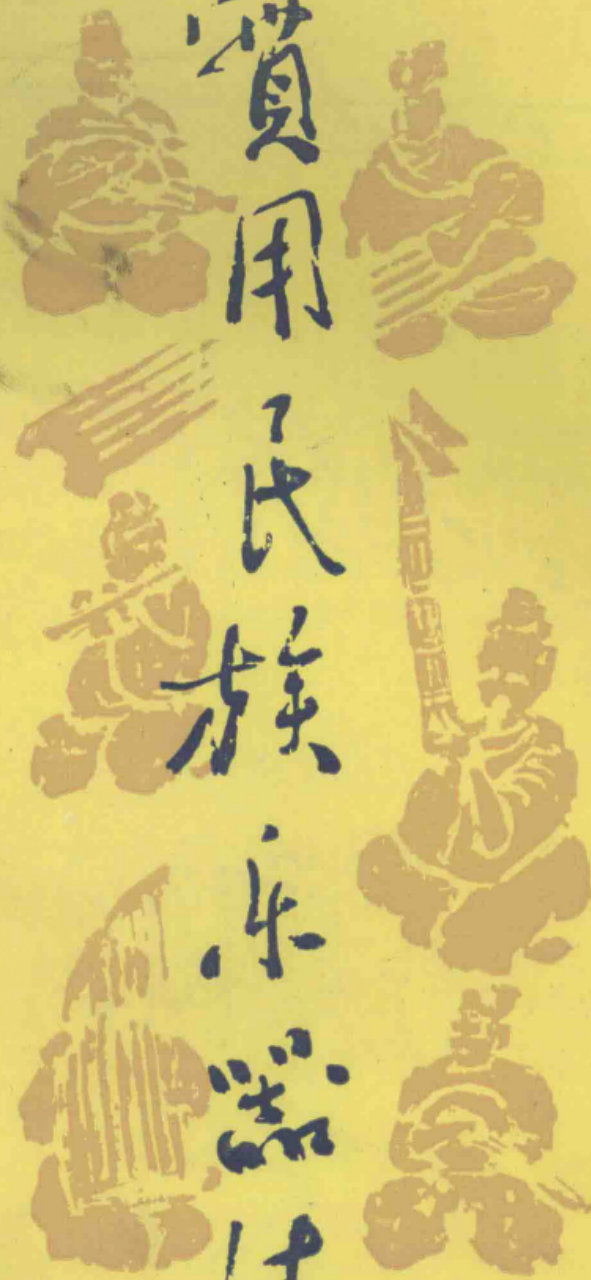 實用民族乐器